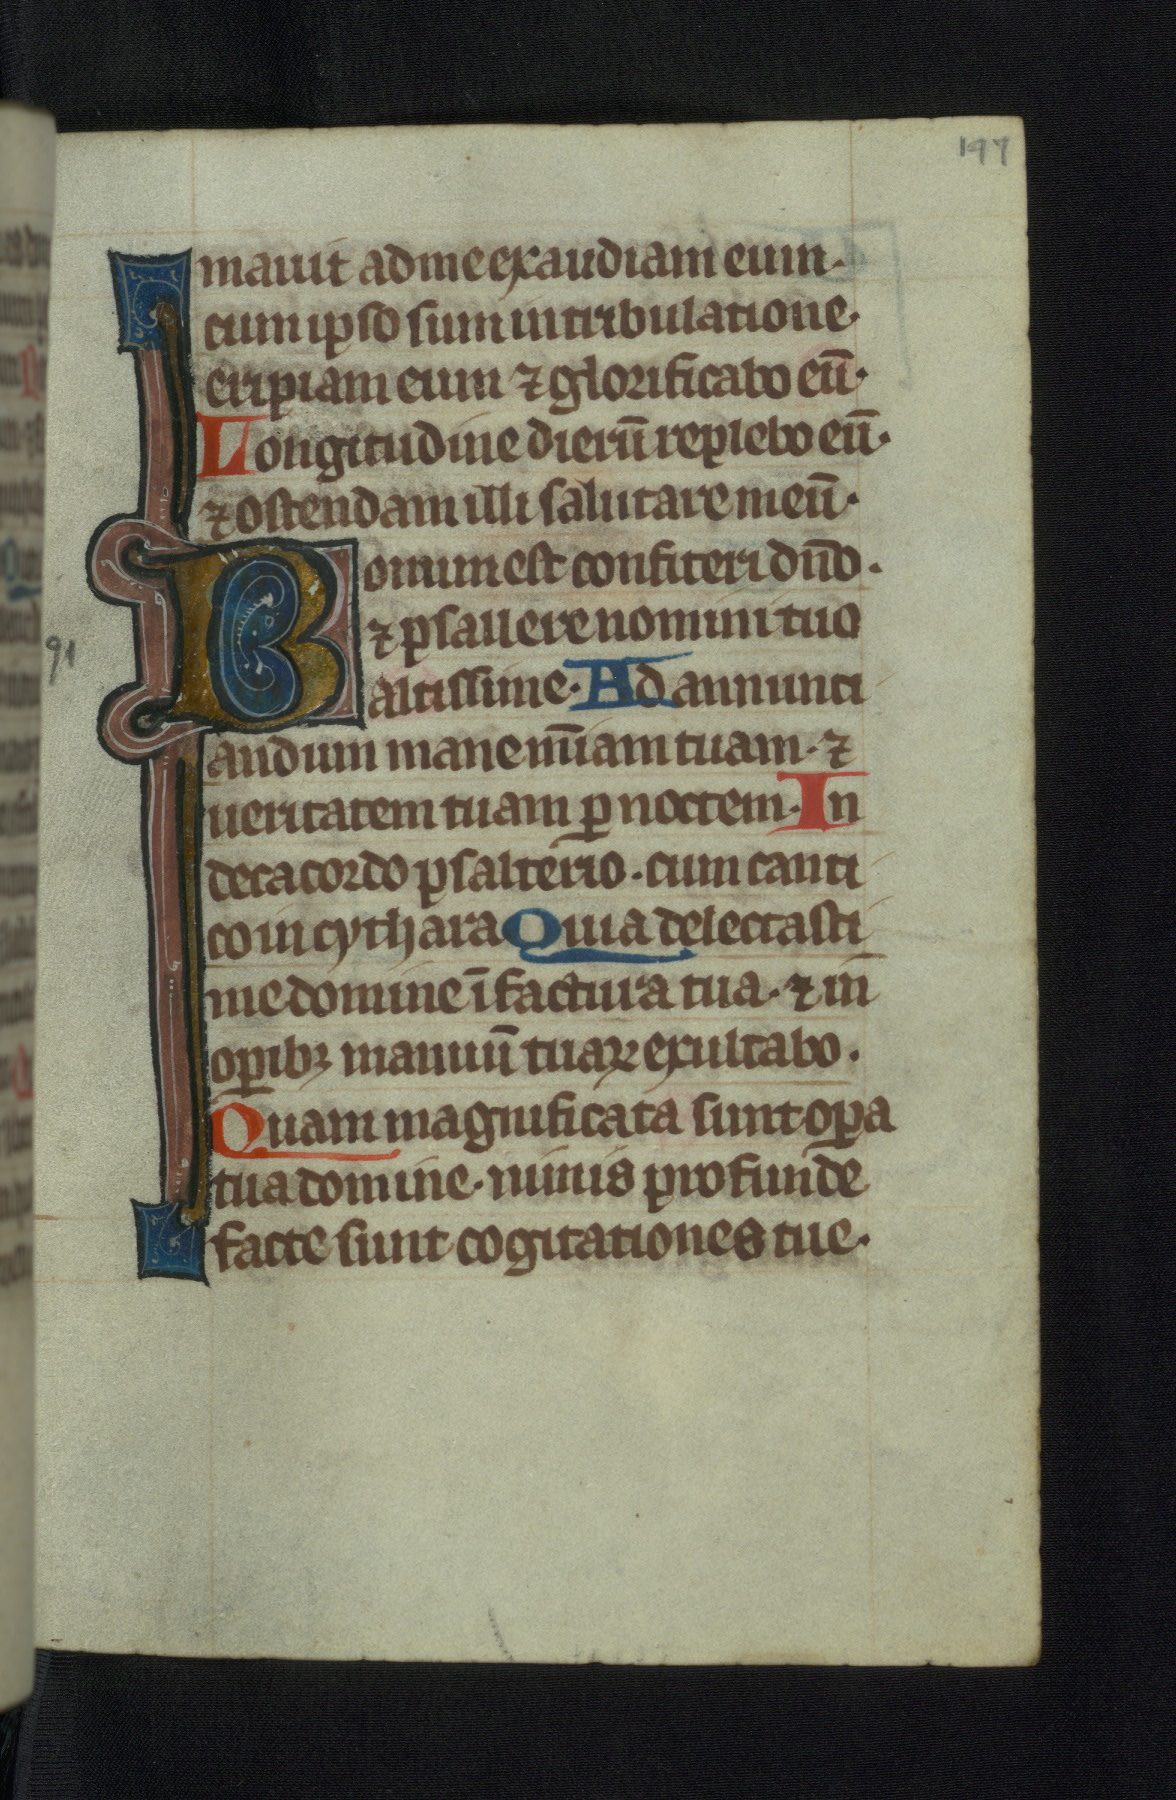 197
mauit ad me exaudiam eum.
cum ipso sum in tribulatione.
eripiam eum ⁊ glorificabo eū.
Longitudine dierū replebo eū.
⁊ ostendam illi salutare meū.
Bonum est confiteri dn̄o.
⁊ psallere nomini tuo
91
altissime. Ad annunci
andum mane mīam tuam. ⁊
ueritatem tuam ꝑ noctem. In
decacordo psalterio. cum canti
co in cythara Quia delectasti
me domine ī factura tua. ⁊ in
oꝑibꝫ manuū tuaꝝ exultabo.
Quam magnificata sunt oꝑa
tua domine. nimis profunde
facte sunt cogitationes tue.